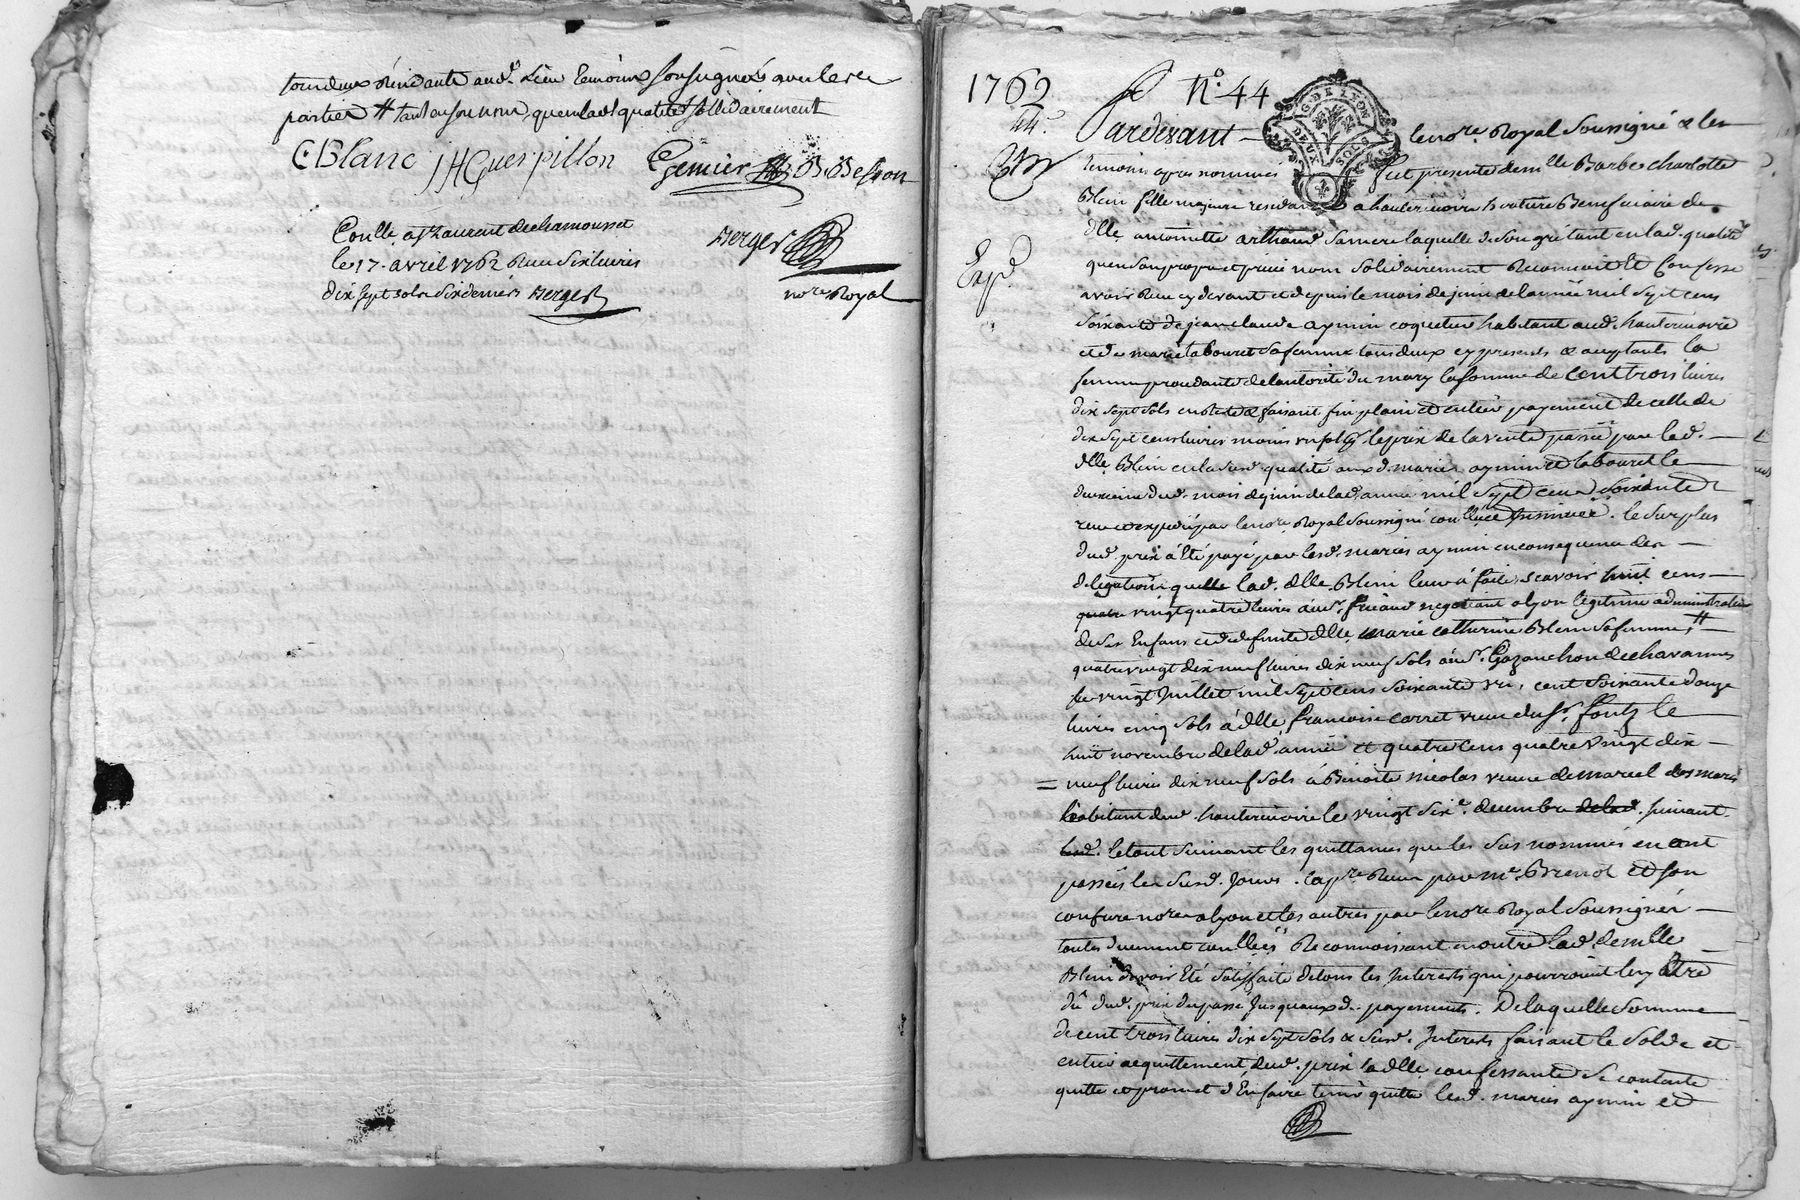 tous deux résidants aud. Lieu temoins soussignés avec les
parties # tant en son nom, quen lad. qualité solidairement
C: Blanc JH Guerpillon Gemier B. Besson
Conllé a St Laurent de chamousset
le 17. avril 1762 Reçu six livres
dix sept sols six deniers Berger
Berger
nore Royal
1762
N°. 44
44e.
G. DE LYON
DEUX SOLS
Pardevant le nore. Royal soussigné & les
temoins apres nommés fut presente demlle Barbe charlotte
Blein fille majeure residante a hauterivoire heritiere Beneficiaire de
dlle antoinette arthaud sa mere laquelle de son gré tant en lad. qualité
quen son propre et privé nom solidairement Reconnoit et Confesse
Expd
avoir Reçu cy devant et depuis le mois de juin de lannée mil sept cens
soixante de jean claude aymin coquetier habitant aud. hauterivoire
et de marie labouret sa femme tous deux cy presents & acceptants la
femme procedante de lautorité du mary la somme de cent trois livres
dix sept sols en reste & faisant fin plain et entier payement de celle de
dix sept cens livres moins le prix de la vente passée par lad.
dlle Blein en la susd. qualité auxd. mariés aymin et labouret le
dud. mois de juin de lad. année mil sept cens soixante
reçue et expediée par le nore Royal soussigné conllée . le surplus
dud. prix a été payé par lesd. mariés aymin en consequence des
delegations que lad. dlle Blein leur a faite, scavoir huit cens
quatre vingt quatre livres a sr. negotiant a lyon legitime administrateur
de ses Enfans et de defunte dlle marie catherine Blein sa femme, #
quatre vingt dix neuf livres dix neuf sols a sr. Gozanchon de chavannes
le vingt Juillet mil sept cens soixante un, cent soixante douze
livres cinq sols a dlle francoise carret veuve du sr. le
huit novembre de lad. année et quatre cens quatre vingt dix
= neuf livres dix neuf sols a Benoite nicolas veuve de marcel des mares
habitant dud. hauterivoire le vingt sixe. decembre de lad. suivant.
le tout suivant les quittances que les sus nommés en ont
passées les susd. Jours. la pre. Reçue par me. Brenot et son
confrere nores a lyon et les autres par le nore Royal soussigné
toutes duement conllées Reconnoissant en outre lad. demlle
Blein davoir été satisfaite de tous les Interests qui pourroient luy être
dû dud. prix du passé Jusquauxd. payements. De laquelle somme
de cent trois livres dix sept sols & susd. Interests faisant le solde et
entier acquittement dud. prix lad. dlle confessante se contente
quitte et promet d'En faire tenir quitte lesd. mariés aymin et